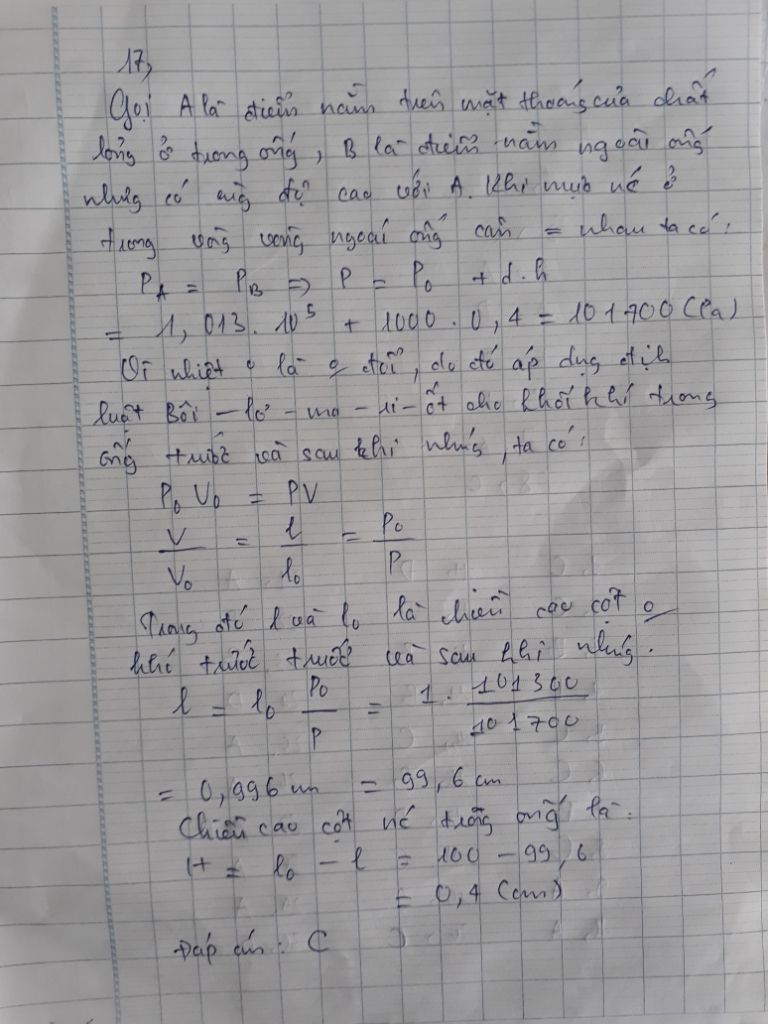 17,
Gọi A là điểm nằm trên mặt thoáng của chất
lỏng ở trong ống, B là điểm nằm ngoài ống
nhưng có cùng độ cao với A. Khi mực nc ở
trong ngoài ống cân = nhau ta có:
PA = PB => P = P0 + d.h
= 1,013.10⁵ + 1000.0,4 = 101700 (Pa)
Vì nhiệt o là đổi, do đó áp dụng định
luật Bôi-lơ-ma-ri-ốt cho khối khí trong
ống trước và sau khi nhúng, ta có:
P0 V0 = PV
V/V0 = l/l0 = P0/P
Trong đó l và l0 là chiều cao cột o
khí trước trước và sau khi nhúng.
l = l0 P0/P = 1. 101300/101700
= 0,996 m = 99,6 cm
Chiều cao cột nc trong ống là:
H = l0 - l = 100 - 99,6
= 0,4 (cm)
Đáp án: C